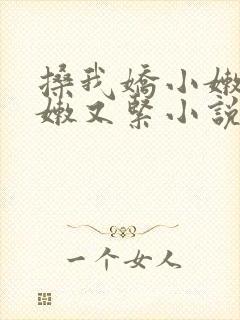 搡我嬌小嫩
嫩又緊小說
一个女人